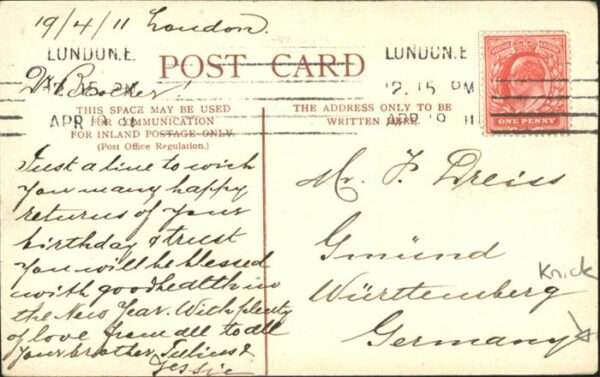 19/4/11 London.
LONDON.E
LONDON.E
POST CARD
Dr Brother!
12.15 PM
THIS SPACE MAY BE USED
FOR COMMUNICATION
FOR INLAND POSTAGE ONLY.
(Post Office Regulation.)
THE ADDRESS ONLY TO BE
WRITTEN HERE.
APR 19 11
APR 19 11
ONE PENNY
Just a line to wish
you many happy
returns of your
birthday & trust
you will be blessed
with good health in
the New Year. With plenty
of love from all to all
Your brother, Julius &
Jessie
Mr. F. Dreiss
Gmünd
Württemberg
Germany
Knick